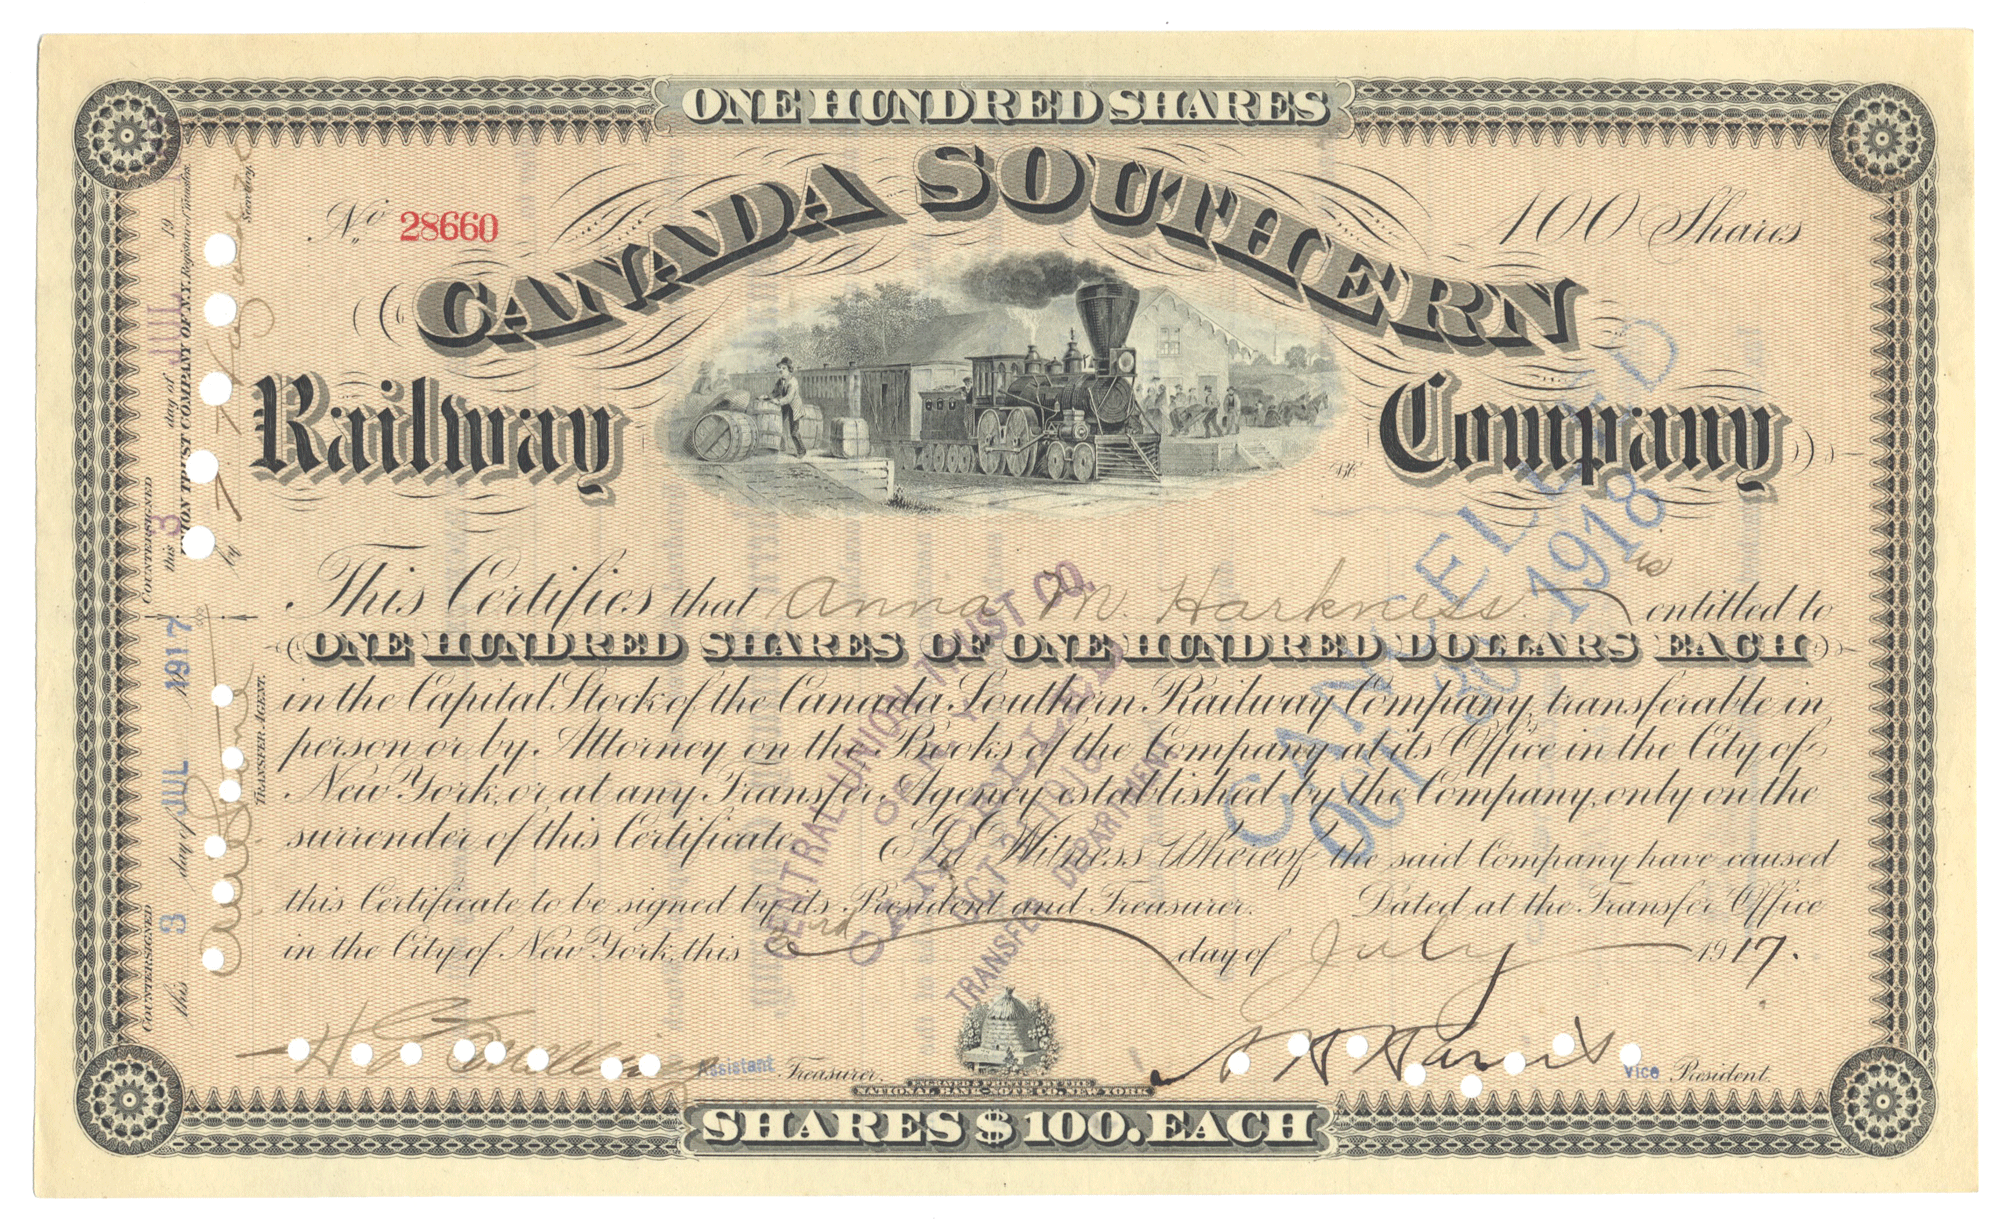 ONE HUNDRED SHARES
No 28660
100 Shares
CANADA SOUTHERN
Railway Company
This Certifies that Anna M. Harkness is entitled to
ONE HUNDRED SHARES OF ONE HUNDRED DOLLARS EACH
in the Capital Stock of the Canada Southern Railway Company, transferable in
person or by Attorney on the Books of the Company at its Office in the City of
New York, or at any Transfer Agency established by the Company, only on the
surrender of this Certificate. In Witness Whereof the said Company have caused
this Certificate to be signed by its President and Treasurer. Dated at the Transfer Office
in the City of New York, this 3rd day of July 1917.
Assistant Treasurer.
Vice President
ENGRAVED & PRINTED BY THE
NATIONAL BANK-NOTE CO. NEW YORK
SHARES $100. EACH
COUNTERSIGNED
this 3 day of JUL 19
UNION TRUST COMPANY OF N.Y. Registrar of Transfer.
by
Secretary
COUNTERSIGNED
this 3 day of JUL 1917
TRANSFER AGENT.
CENTRAL UNION TRUST CO.
OF N.Y.
CANCELLED
OCT 30 1918
TRANSFER DEPARTMENT
CANCELLED
OCT 30 1918